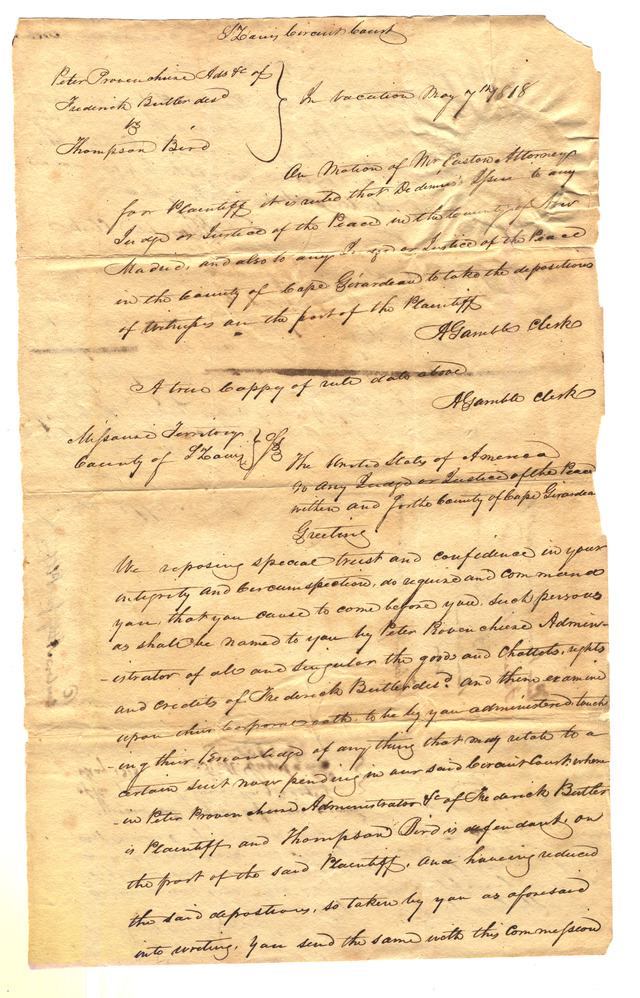 St Louis Circuit Court
Peter Provenchere Ads &c of
Frederick Butler decd
vs
Thompson Bird
In vacation May 7th 1818
On Motion of Mr. Easton Attorney
for Plaintiff it is ruled that Dedimus's Issue to any
Judge or Justice of the Peace in the County of New
Madrid, and also to any Judge or Justice of the Peace
in the County of Cape Girardeau to take the depositions
of witnesses on the part of the Plaintiff
AGamble Clerk
A true Coppy of rule date above
AGamble Clerk
Missouri Territory
County of St Louis
The United States of America
to any Judge or Justice of the Peace
within and for the County of Cape Girardeau
Greeting
We reposing special trust and confidence in your
integrity and Circumspection, do require and command
you, that you cause to come before you, such persons
as shall be named to you by Peter Provenchere Admin-
-istrator of all and singular the goods and Chattels, rights
and credits of Frederick Butler decd. and them examine
upon their Corporal oath, to be by you administered, touch
-ing their knowledge of any thing that may relate to a
certain suit now pending in our said Circuit Court where
-in Peter Provenchere Administrator &c of Frederick Butler
is Plaintiff and Thompson Bird is defendant, on
the part of the said Plaintiff, and having reduced
the said depostions, so taken by you as aforesaid
into writing, you send the same with this Commission